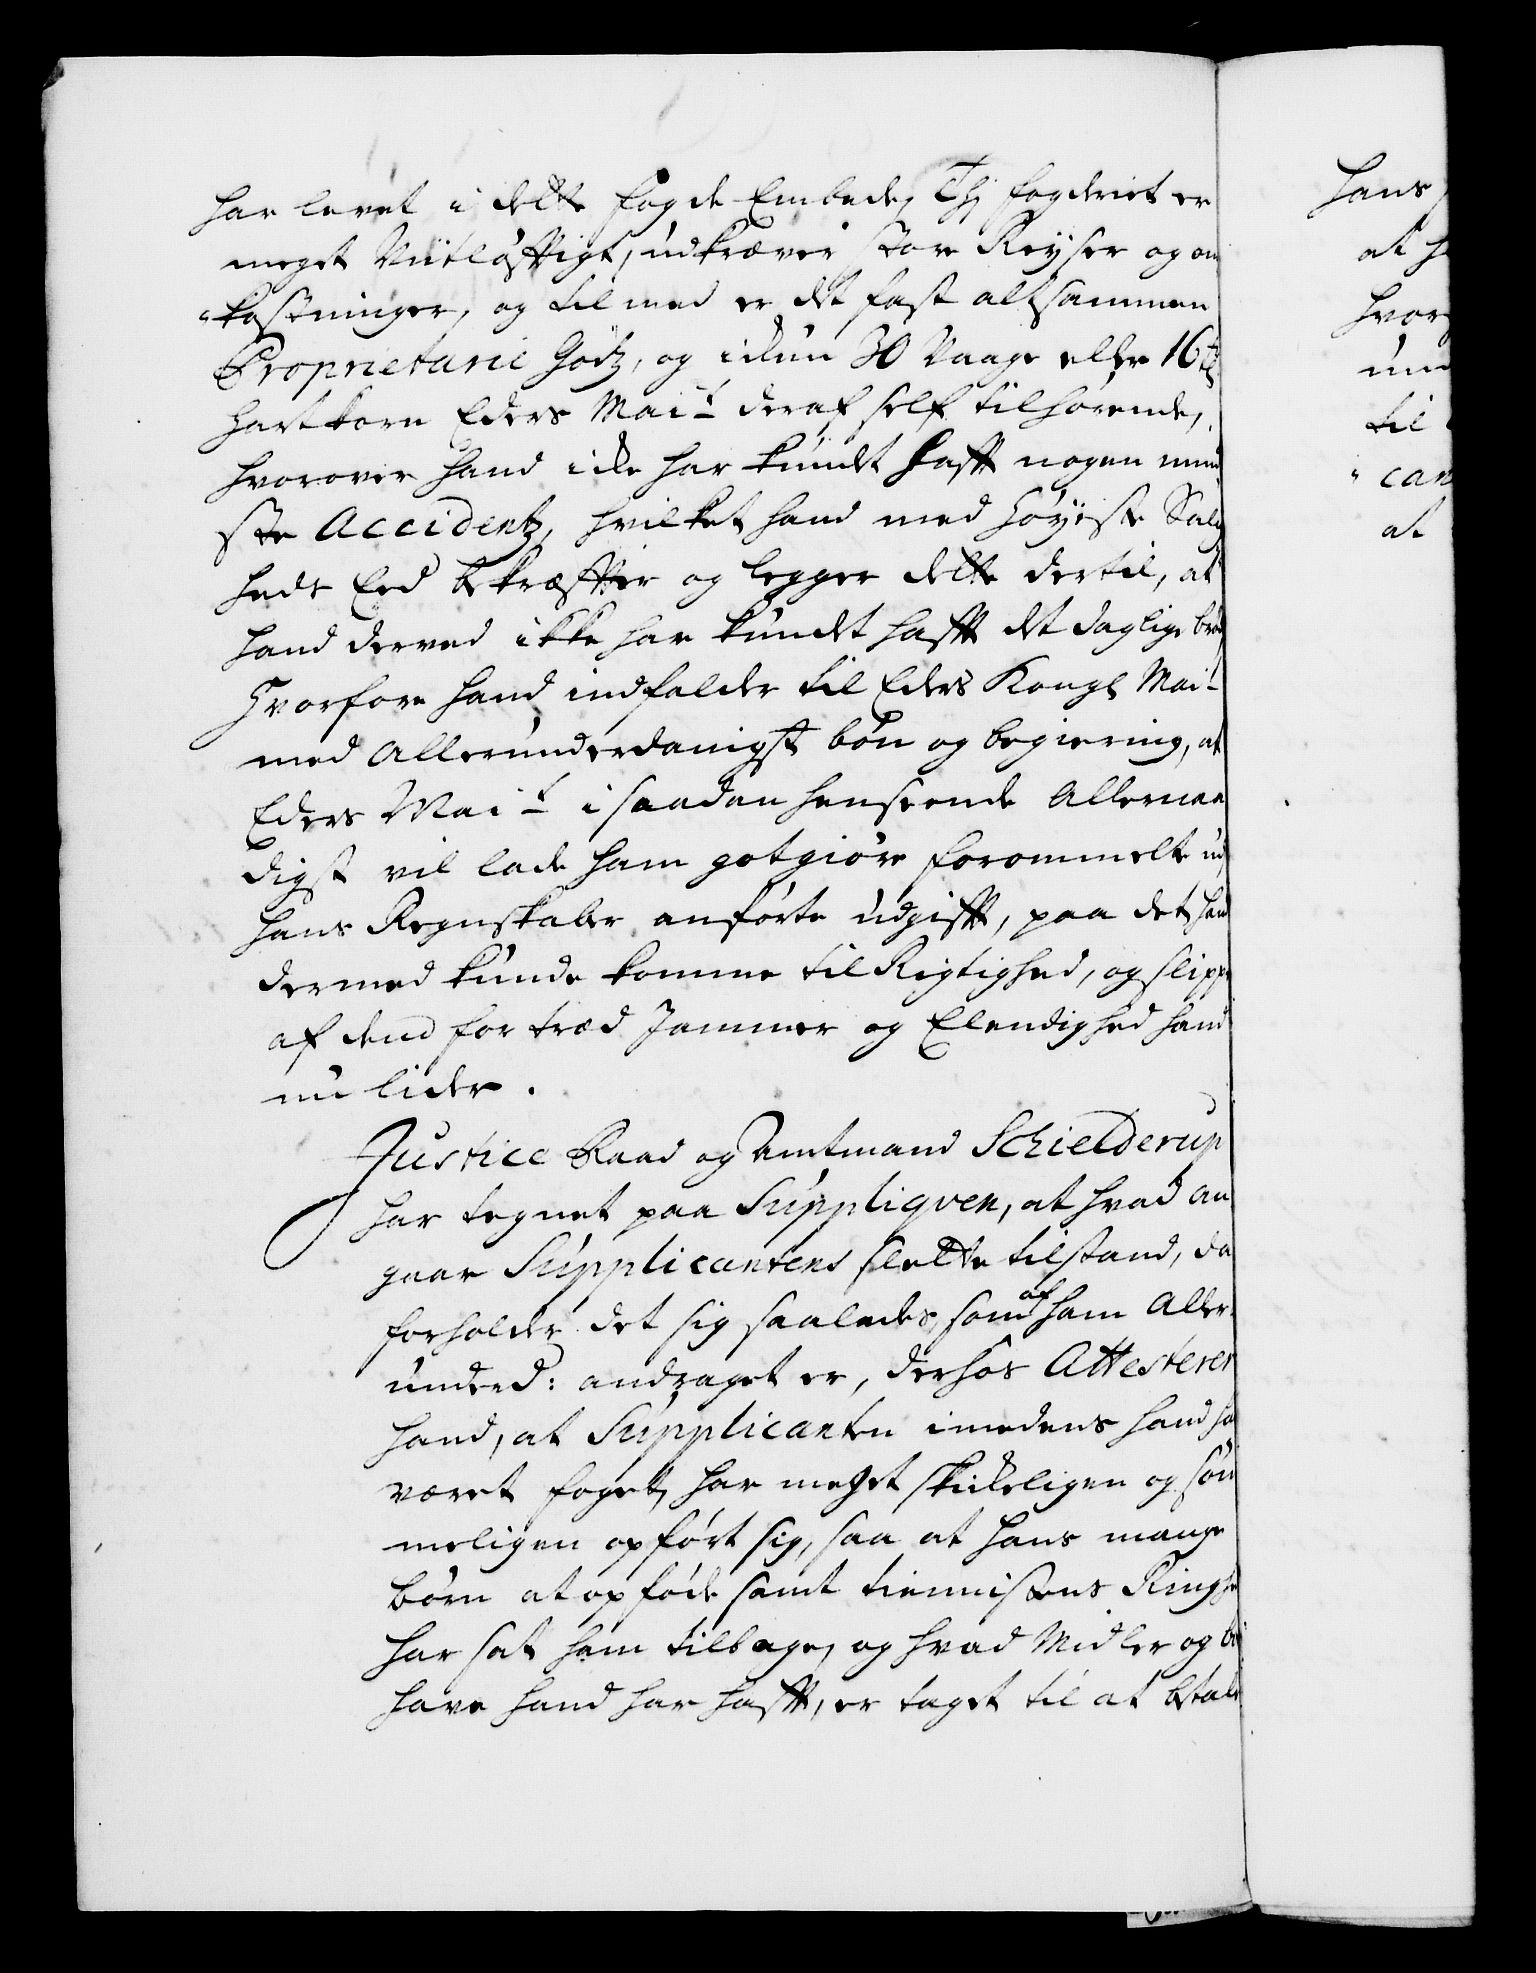 har levet i dette fogde Embede, Thj fogderiet er
meget Viitløfftigt, udkræver store Reyser og om
kostninger, og til med er det fast altsammen
Proprietarie Godtz, og ickun 30 Vaage eller 16 td
Hartkorn Eders Mait deraf self tilhørende,
hvorover hand icke har kundt hafft nogen mind
ste Accidentz, hvilket hand med høyeste Salig
heds Eed bekræffter og legger dette dertil, at
hand derved ikke har kundt hafft det daglige brød
Hvorfore hand indfalder til Eders Kongl Mait
med Allerunderdanigst bøn og begiering, at
Eders Mait i saadan henseende Allernaa
digst vil lade ham gotgiøre forommelte ud
hans Regnskaber anførte udgifft, paa det hand
dermed kunde komme til Rigtighed, og slippe
af dend fortræd Jammer og Elendighed hand
nu lider.
Justice Raad og Amtmand Schielderup
har tegnet paa Suppliqven, at hvad an
gaar Supplicantens slette tilstand, da
forholder det sig saaledes, som af ham Aller
underd: andraget er, derhos Attesterer
hand, at Supplicanten imedens hand har
været foget, har meget skickeligen og søm
meligen opført sig, saa at hans mange
børn at opføde samt tiennistens Ringhed
har sat ham tilbage, og hvad Midler og be
have hand har hafft, er taget til at betale
hans
at
hvor
til
can
at